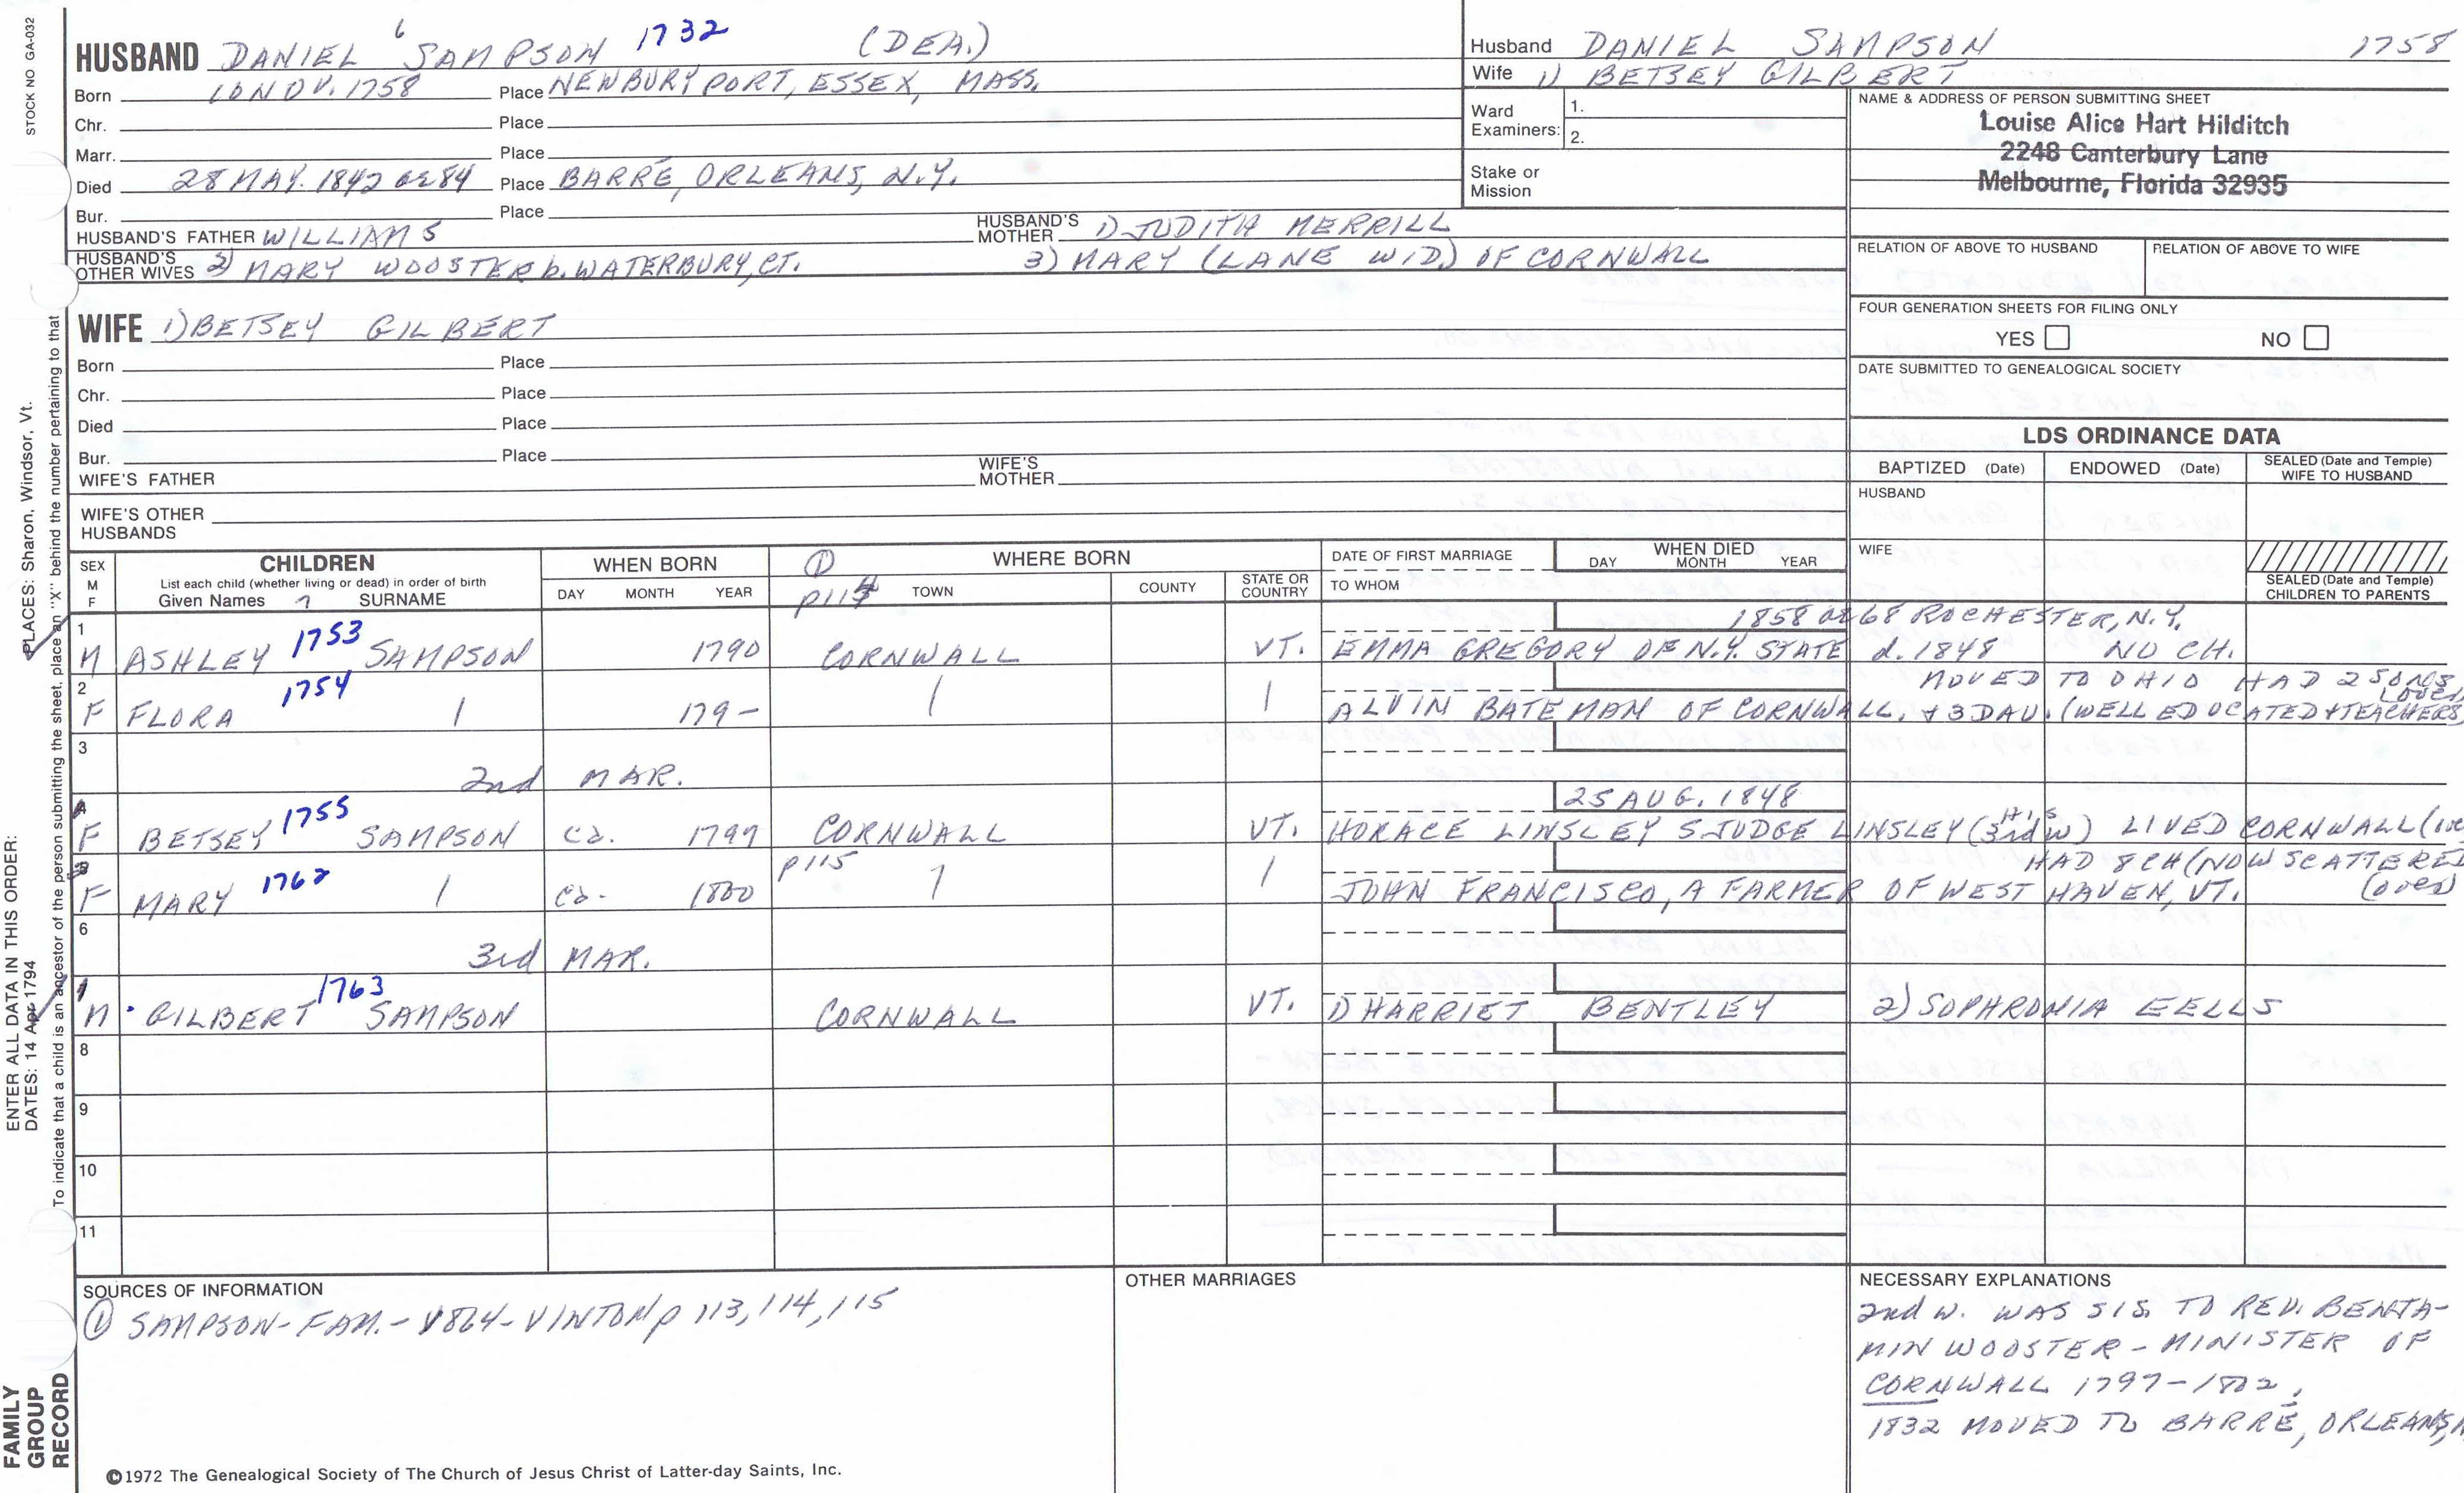 STOCK NO GA-032
HUSBAND DANIEL 6 SAMPSON 1732 (DEA.)
Born 10 NOV. 1758 Place NEWBURYPORT, ESSEX, MASS.
Chr. Place
Marr. Place
Died 28 MAY. 1842 ae 84 Place BARRÉ, ORLEANS, N.Y.
Bur. Place
HUSBAND'S FATHER WILLIAM 5 HUSBAND'S MOTHER 1) JUDITH MERRILL
HUSBAND'S OTHER WIVES 2) MARY WOOSTER b. WATERBURY, CT. 3) MARY (LANE WID.) OF CORNWALL
Husband DANIEL SAMPSON 1758
Wife 1) BETSEY GILBERT
Ward Examiners: 1.
2.
Stake or Mission
NAME & ADDRESS OF PERSON SUBMITTING SHEET
Louise Alice Hart Hilditch
2248 Canterbury Lane
Melbourne, Florida 32935
RELATION OF ABOVE TO HUSBAND RELATION OF ABOVE TO WIFE
FOUR GENERATION SHEETS FOR FILING ONLY
YES NO
DATE SUBMITTED TO GENEALOGICAL SOCIETY
WIFE 1) BETSEY GILBERT
Born Place
Chr. Place
Died Place
Bur. Place
WIFE'S FATHER WIFE'S MOTHER
WIFE'S OTHER HUSBANDS
LDS ORDINANCE DATA
BAPTIZED (Date) ENDOWED (Date) SEALED (Date and Temple) WIFE TO HUSBAND
HUSBAND
WIFE
SEALED (Date and Temple) CHILDREN TO PARENTS
SEX M F CHILDREN WHEN BORN WHERE BORN DATE OF FIRST MARRIAGE WHEN DIED
List each child (whether living or dead) in order of birth
Given Names 7 SURNAME DAY MONTH YEAR ① p114 TOWN COUNTY STATE OR COUNTRY TO WHOM DAY MONTH YEAR
1 1858 or 68 ROCHESTER, N.Y.
M ASHLEY 1753 SAMPSON 1790 CORNWALL VT. EMMA GREGORY OF N.Y. STATE d. 1848 NO CH.
2 MOVED TO OHIO HAD 2 SONS
F FLORA 1754 179- ALVIN BATEMAN OF CORNWALL. + 3 DAU. (WELL EDUCATED + TEACHERS
3 2nd MAR.
4 25 AUG. 1848
F BETSEY 1755 SAMPSON ca. 1799 CORNWALL VT. HORACE LINSLEY S. JUDGE LINSLEY (HIS 3rd W) LIVED CORNWALL
5 p115 HAD 8 CH (NOW SCATTERED
F MARY 1762 ca. 1800 JOHN FRANCISCO, A FARMER OF WEST HAVEN, VT. (over)
6 3rd MAR.
7
M GILBERT 1763 SAMPSON CORNWALL VT. 1) HARRIET BENTLEY 2) SOPHRONIA EELLS
8
9
10
11
SOURCES OF INFORMATION
① SAMPSON-FAM.-1864-VINTON p 113, 114, 115
OTHER MARRIAGES
NECESSARY EXPLANATIONS
2nd W. WAS SIS. TO REV. BENJA-
MIN WOOSTER - MINISTER OF
CORNWALL 1797-1802.
1832 MOVED TO BARRÉ, ORLEANS,
©1972 The Genealogical Society of The Church of Jesus Christ of Latter-day Saints, Inc.
FAMILY GROUP RECORD
ENTER ALL DATA IN THIS ORDER:
DATES: 14 Apr 1794
PLACES: Sharon, Windsor, Vt.
To indicate that a child is an ancestor of the person submitting the sheet, place an "X" behind the number pertaining to that